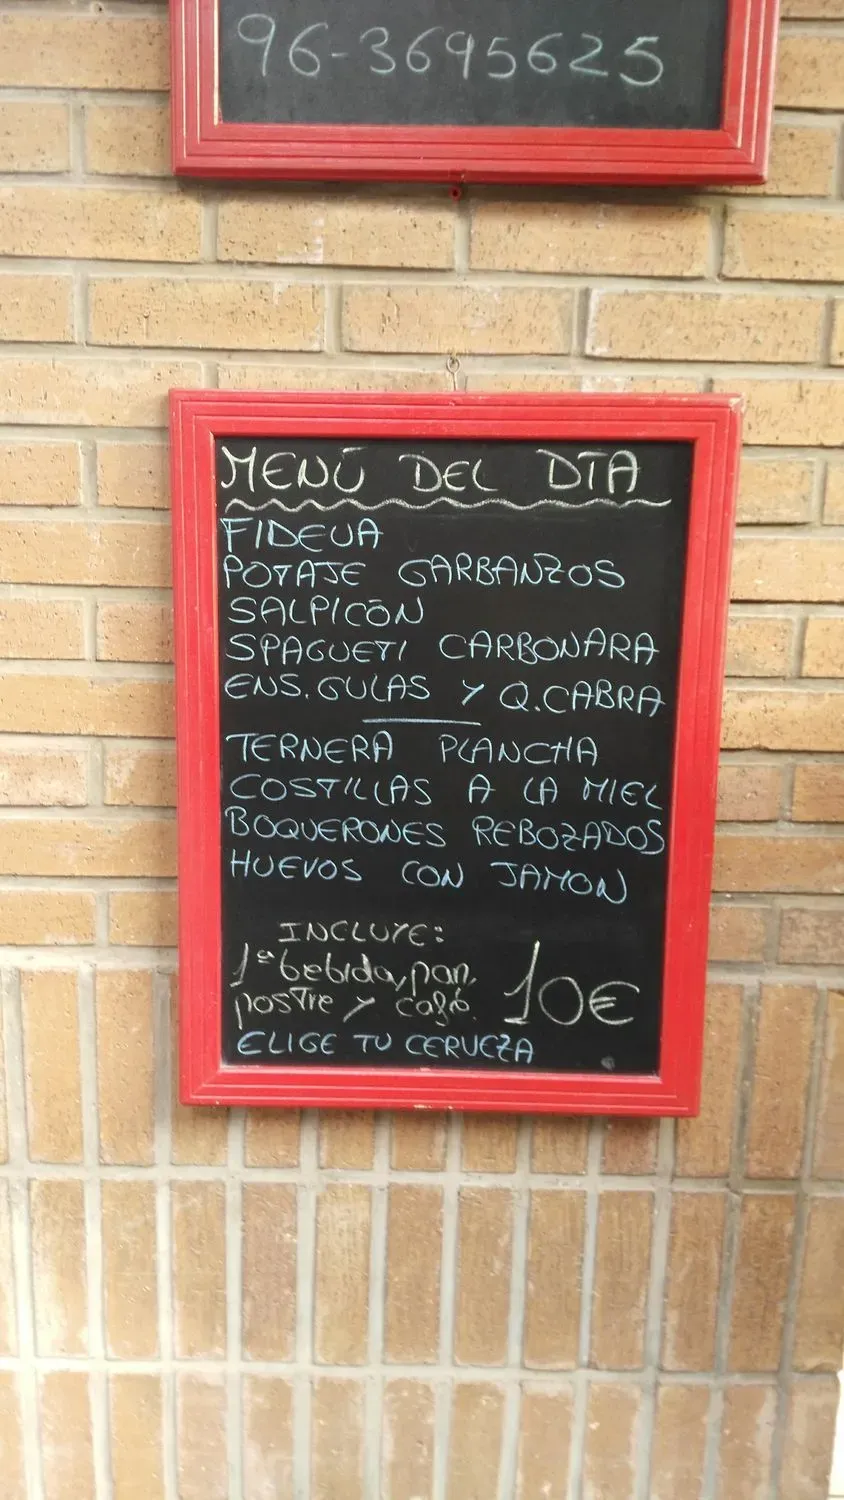 96-3695625
MENÚ DEL DÍA
FIDEUA
POTAJE GARBANZOS
SALPICÓN
SPAGUETI CARBONARA
ENS. GULAS Y Q. CABRA
TERNERA PLANCHA
COSTILLAS A LA MIEL
BOQUERONES REBOZADOS
HUEVOS CON JAMON
INCLUYE:
1ª bebida, pan,
postre y café.
10€
ELIGE TU CERVEZA